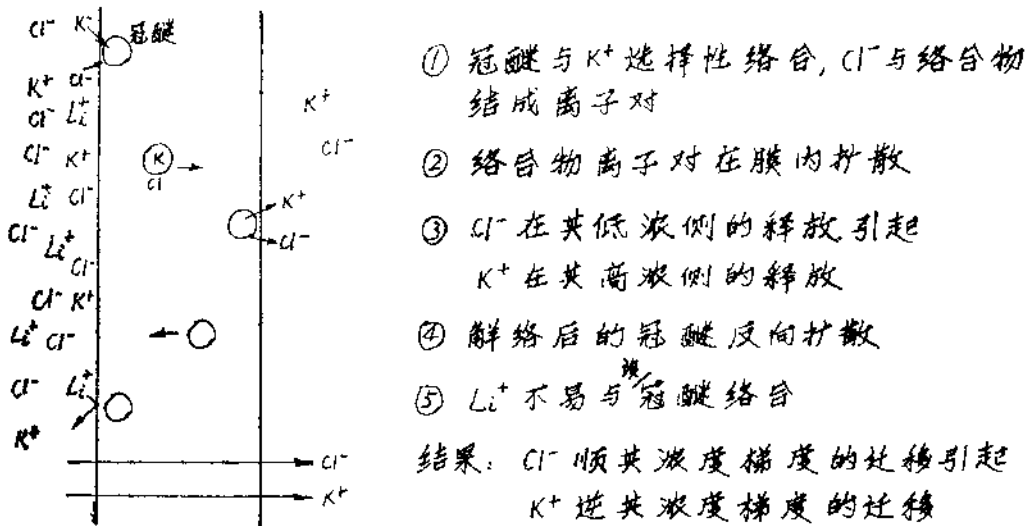 Cl⁻ K⁻
冠醚
K⁺ Cl⁻
Cl⁻ Li⁺
Cl⁻ K⁺
Li⁺ Cl⁻
Cl⁻ Li⁺
Cl⁻
Cl⁻ K⁺
Li⁺ Cl⁻
Cl⁻ Li⁺
K⁺
K
Cl
K⁺
Cl⁻
K⁺
Cl⁻
Cl⁻
K⁺
① 冠醚与K⁺选择性络合,Cl⁻与络合物
结成离子对
② 络合物离子对在膜内扩散
③ Cl⁻在其低浓侧的释放引起
K⁺在其高浓侧的释放
④ 解络后的冠醚反向扩散
⑤ Li⁺不易与该冠醚络合
结果: Cl⁻顺其浓度梯度的迁移引起
K⁺逆其浓度梯度的迁移